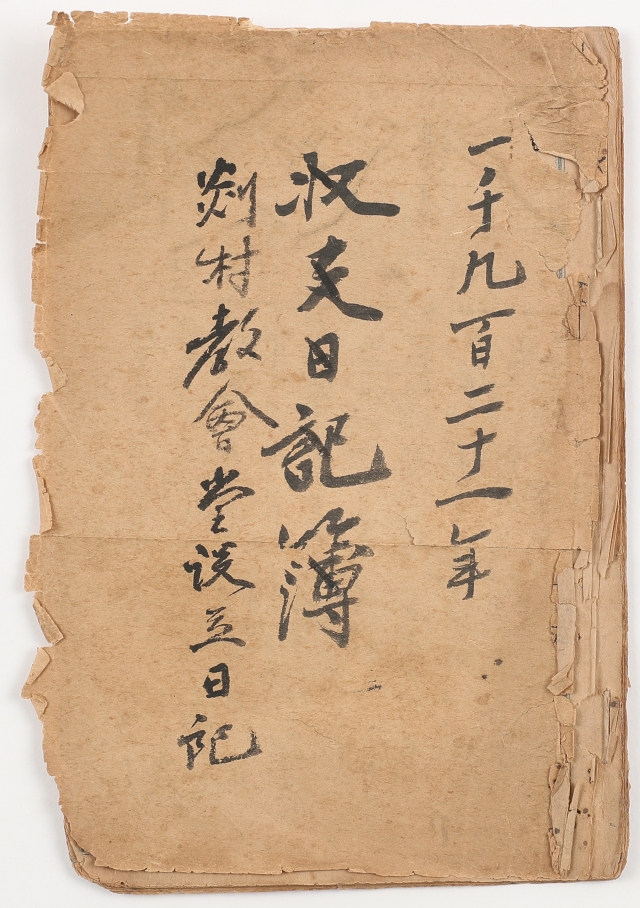 一千九百二十一年
収支日記簿
剡村教會堂設立日記